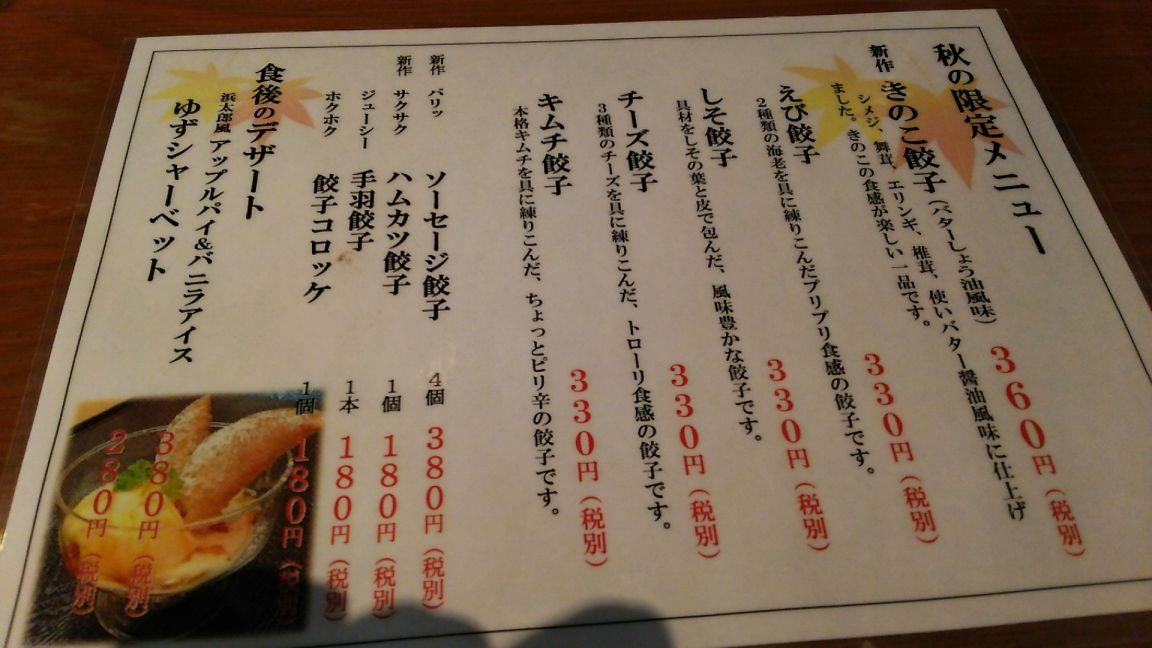 秋の限定メニュー
新作 きのこ餃子(バターしょう油風味) 360円(税別)
シメジ、舞茸、エリンギ、椎茸、使いバター醤油風味に仕上げ
ました。きのこの食感が楽しい一品です。
えび餃子 330円(税別)
2種類の海老を具に練りこんだプリプリ食感の餃子です。
しそ餃子 330円(税別)
具材をしその葉と皮で包んだ、風味豊かな餃子です。
チーズ餃子 330円(税別)
3種類のチーズを具に練りこんだ、トローリ食感の餃子です。
キムチ餃子 330円(税別)
本格キムチを具に練りこんだ、ちょっとピリ辛の餃子です。
新作 パリッ ソーセージ餃子 4個 380円(税別)
新作 サクサク ハムカツ餃子 1個 180円(税別)
ジューシー 手羽餃子 1本 180円(税別)
ホクホク 餃子コロッケ 1個 180円(税別)
食後のデザート
浜太郎風 アップルパイ&バニラアイス 380円(税別)
ゆずシャーベット 280円(税別)